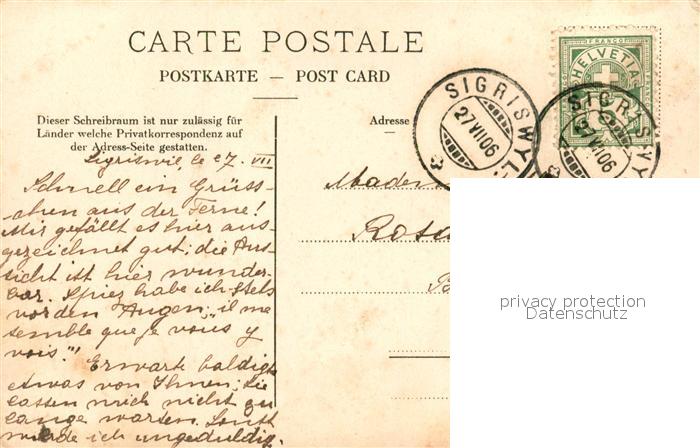 CARTE POSTALE
POSTKARTE — POST CARD
Dieser Schreibraum ist nur zulässig für
Länder welche Privatkorrespondenz auf
der Adress-Seite gestatten.
Adresse
SIGRISWYL
27 VII 06
FRANCO
HELVETIA
SIGRISWYL
27 VII 06
Sigriswil, le 27. VII
Schnell ein Grüss-
chen aus der Ferne!
Mir gefällt es hier aus-
gezeichnet gut; die Aus-
sicht ist hier wunder-
bar. Spiez habe ich stets
vor den Augen; „il me
semble que je vous y
vois."
Erwarte baldigst
etwas von Ihnen; Sie
lassen mich nicht zu
lange warten. Sonst
werde ich ungeduldig.
Madem
Rosa
privacy protection
Datenschutz